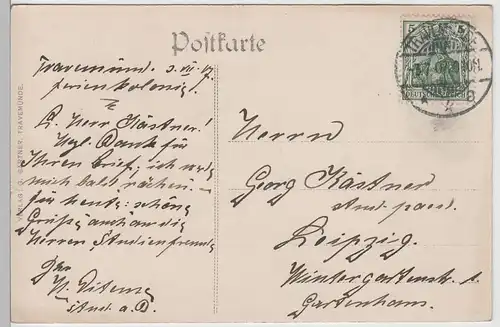 Postkarte
Travemünde 3. VII. 07.
Ferienkolonie!
L. Herr Kästner!
Vgl. Dank für
Ihren Brief, ich werde
mich bald rächen.
für heute: schöne
Grüße, auch an die
Herren Studienfreunde
Ihr
stud. a. D.
Herrn
Georg Kästner
stud. paed.
Leipzig.
Wintergartenstr.
Gartenhaus.
VERLAG: G. GÄRTNER, TRAVEMÜNDE.
5
DEUTSCHES REICH
TRAVEMÜNDE